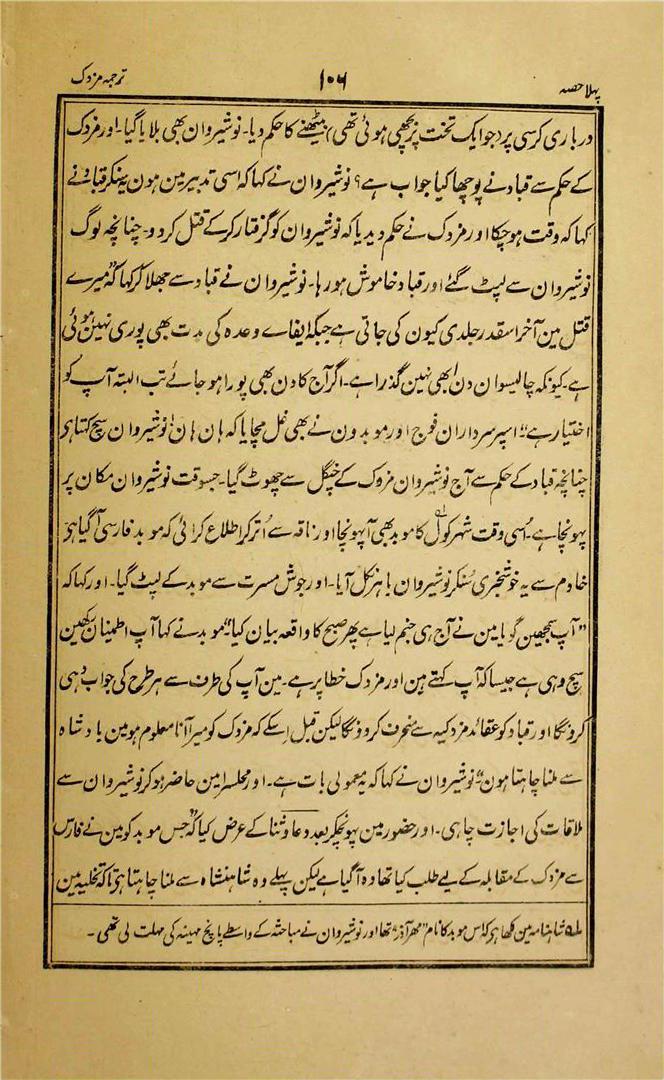 پہلا حصہ ۱۰۶ ترجمہ مزدک
درباری کرسی پر (جو ایک تخت پر بچھی ہوئی تھی) بیٹھنے کا حکم دیا۔ نوشیروان بھی بلایا گیا۔ اور مزدک
کے حکم سے قباد نے پوچھا کیا جواب ہے؟ نوشیروان نے کہا کہ اسی تدبیر مین ہون یہ سنکر قباد نے
کہا کہ وقت ہو چکا اور مزدک نے حکم دیدیا کہ نوشیروان کو گرفتار کر کے قتل کر دو۔ چنانچہ لوگ
نوشیروان سے لپٹ گئے اور قباد خاموش ہو رہا۔ نوشیروان نے قباد سے جھلا کر کہا کہ "میرے
قتل مین آخر اسقدر جلدی کیون کی جاتی ہے جبکہ ایفاے وعدہ کی مدت بھی پوری نہین ہوئی
ہے۔ کیونکہ چالیسوان دن ابھی نہین گذرا ہے۔ اگر آج کا دن بھی پورا ہو جائے تب البتہ آپ کو
اختیار ہے" اسپر سرداران فوج اور موبدون نے بھی غل مچایا کہ ہان ہان! نوشیروان سچ کہتا ہی
چنانچہ قباد کے حکم سے آج نوشیروان مزدک کے چنگل سے چھوٹ گیا۔ جسوقت نوشیروان مکان پر
پہونچا ہے۔ اُسی وقت شہر کول کا موبد بھی آ پہونچا اور ناقہ سے اُتر کر اطلاع کرائی کہ موبد فارسی آ گیا ہی
خادم سے یہ خوشخبری سُنکر نوشیروان باہر نکل آیا۔ اور جوش مسرت سے موبد کے لپٹ گیا۔ اور کہا کہ
"آپ سمجھین گویا مین نے آج ہی جنم لیا ہے پھر صبح کا واقعہ بیان کیا" موبد نے کہا آپ اطمنان رکھین
سچ وہی ہے جیسا کہ آپ کہتے ہین اور مزدک خطا پر ہے۔ مین آپ کی طرف سے ہر طرح کی جواب دہی
کرونگا اور قباد کو عقائد مزدکیہ سے منحرف کر دونگا لیکن قبل اِسکے کہ مزدک کو میرا آنا معلوم ہو مین بادشاہ
سے ملنا چاہتا ہون" نوشیروان نے کہا کہ یہ معمولی بات ہے۔ اور محلسرا مین حاضر ہو کر نوشیروان سے
ملاقات کی اجازت چاہی۔ اور حضور مین پہونچکر بعد دعا و ثنا کے عرض کیا کہ "جس موبد کو مین نے فارس
سے مزدک کے مقابلہ کے لیے طلب کیا تھا وہ آ گیا ہے لیکن پہلے وہ شاہنشاہ سے ملنا چاہتا ہی تاکہ تخلیہ مین
لہ شاہنامہ مین لکھا ہی کہ اس موبد کا نام "مہر آذر" تھا اور نوشیروان نے مباحثہ کے واسطے پانچ مہینہ کی مہلت لی تھی۔